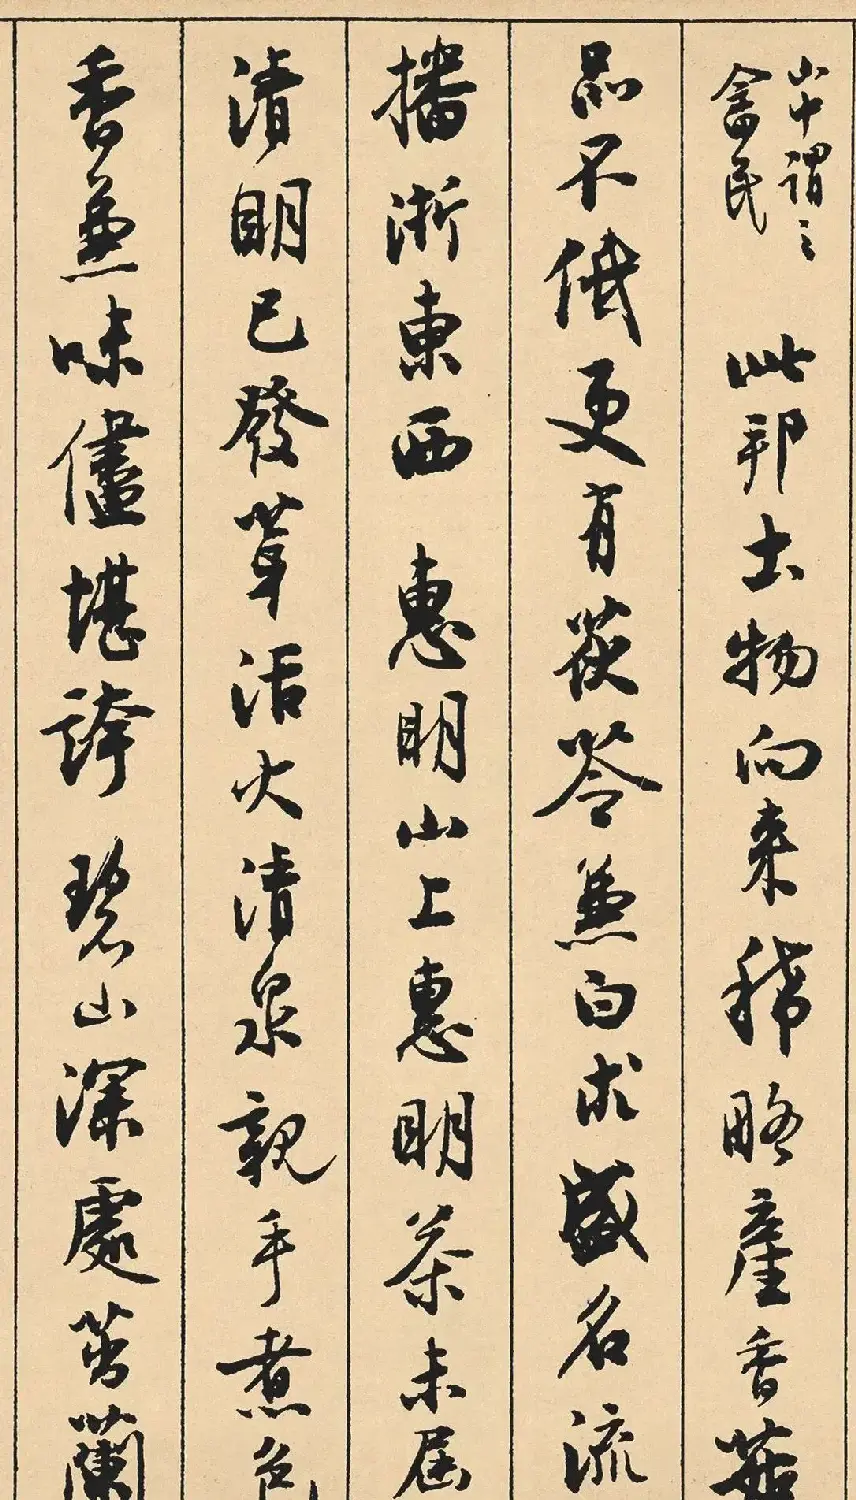 山中謂之
畲民
此邦土物向来稀略產香菇
品不低更有茯苓兼白朮盛名流
播浙東西 惠明山上惠明茶未屆
清明已發芽活火清泉親手煮色
香兼味儘堪誇 碧山深處苦蘭